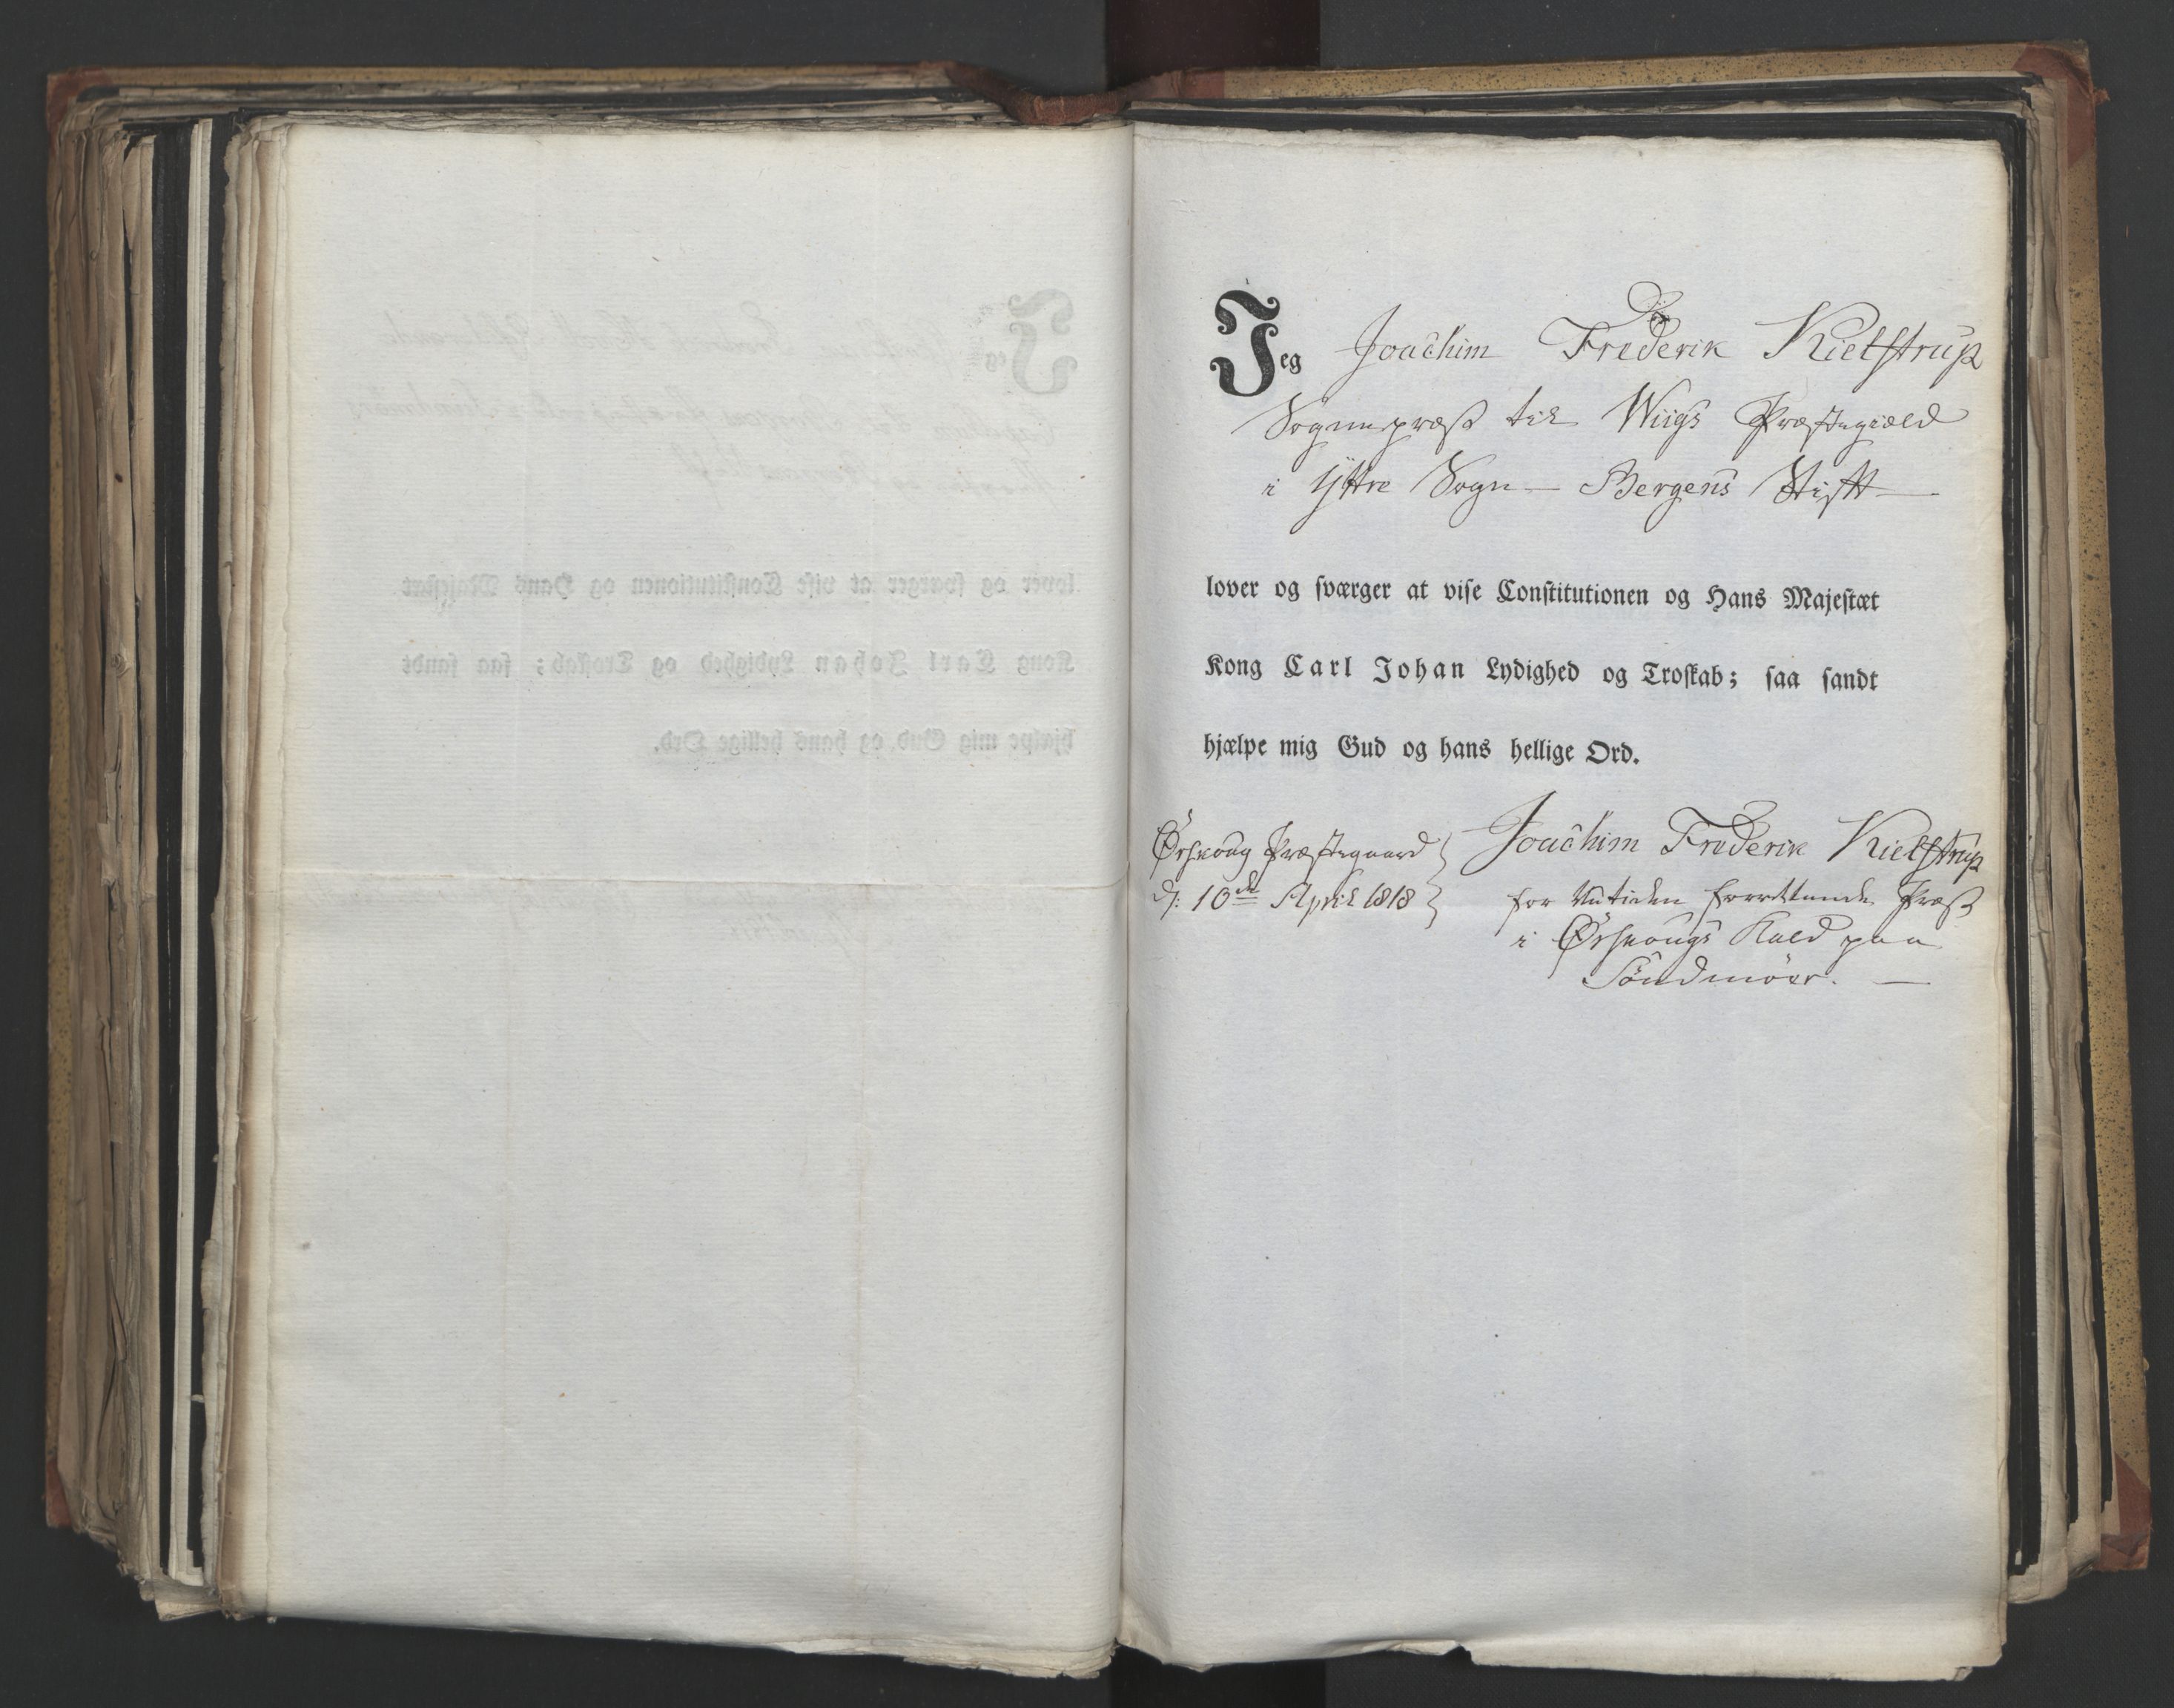 Jeg Joachim Frederik Kielstrup
Sognepræst til Wiigs Præstegield
i Ÿttre Sogn – Bergens Stift –
lover og sværger at vise Constitutionen og Hans Majestæt
Kong Carl Johan Lydighed og Troskab; saa sandt
hjælpe mig Gud og hans hellige Ord.
Ørskoug Præstegaard
d: 10de April 1818
Joachim Frederik Kielstrup
for Nutiden forrettende Præst
i Ørskougs Kald paa
Søndmöer. –